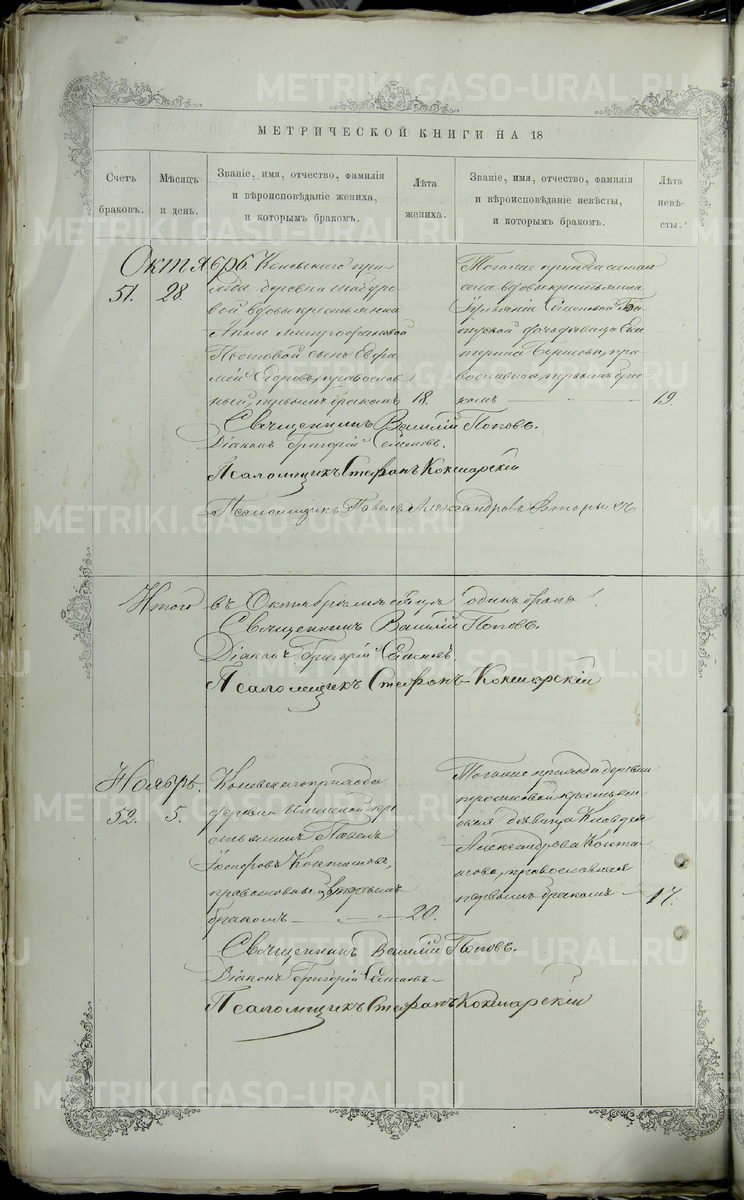 МЕТРИЧЕСКОЙ КНИГИ НА 18
Счетъ браковъ.
Мѣсяцъ и день.
Званіе, имя, отчество, фамилія
и вѣроисповѣданіе жениха,
и которымъ бракомъ.
Лѣта жениха.
Званіе, имя, отчество, фамилія
и вѣроисповѣданіе невѣсты,
и которымъ бракомъ.
Лѣта невѣ-
сты.
Октябрь.
51. 28
Коневскаго при-
хода деревни
вой вдовы крестьянки
Анны Митрофановой
сынъ Евфи-
мій православ
ный, первымъ бракомъ 18.
Тогоже прихода
села вдовы крестьянки
Семеновой
дочь дѣвица Ека-
терина Борисова, пра
вославная, первымъ бра
комъ 19
Священникъ Василій Поповъ.
Діаконъ Григорій Семеновъ.
Псаломщикъ Стефанъ Кокшарскій
Псаломщикъ Павелъ Александровъ Вторыхъ
Итого въ Октябрѣ мѣсяцѣ одинъ бракъ.
Священникъ Василій Поповъ.
Діаконъ Григорій Семеновъ.
Псаломщикъ Стефанъ Кокшарскій
Ноябрь.
52. 5.
Коневскаго прихода
деревни кре
стьянинъ Павелъ
православный, первымъ
бракомъ 20.
Тогоже прихода деревни
крестьян
ская дѣвица Клавдія
Александрова
православная
первымъ бракомъ 17.
Священникъ Василій Поповъ.
Діаконъ Григорій Семеновъ
Псаломщикъ Стефанъ Кокшарскій
METRIKI.GASO-URAL.RU